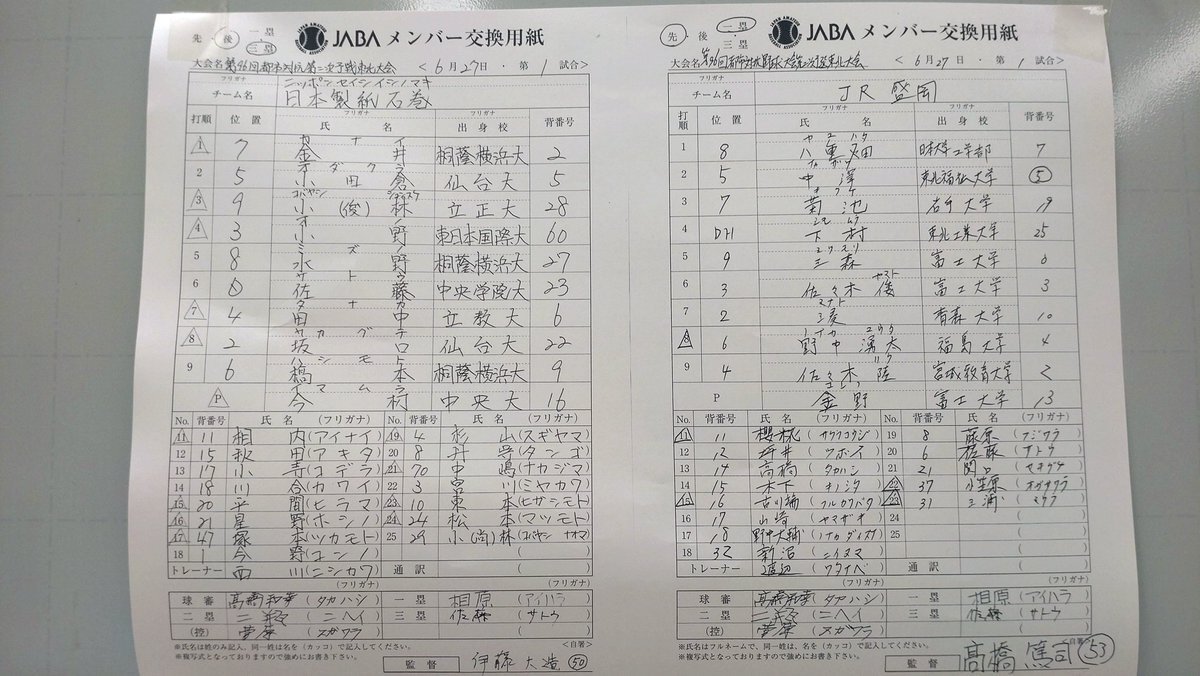 先・後 一塁 三塁 JABA メンバー交換用紙
大会名 第96回都市対抗第二次予戦東北大会 < 6月27日・第1試合>
フリガナ ニッポンセイシイシノマキ
チーム名 日本製紙石巻
打順 位置 フリガナ 氏名 フリガナ 出身校 背番号
1 7 カナイ 金井 桐蔭横浜大 2
2 5 オダクラ 小田倉 仙台大 5
3 9 コバヤシ シュンスケ 小(俊)林 立正大 28
4 3 オノ 小野 東日本国際大 60
5 8 ミズノ 水野 桐蔭横浜大 27
6 0 サトウ 佐藤 中央学院大 23
7 4 タナカ 田中 立教大 6
8 2 サカグチ 坂口 仙台大 22
9 6 ハシモト 橋本 桐蔭横浜大 9
P イマムラ 今村 中央大 16
No. 背番号 氏名 (フリガナ) No. 背番号 氏名 (フリガナ)
11 11 相内(アイナイ) 19 4 杉山(スギヤマ)
12 15 秋田(アキタ) 20 8 丹労(タンゴ)
13 17 小寺(コデラ) 21 70 中嶋(ナカジマ)
14 18 川合(カワイ) 22 3 宮川(ミヤカワ)
15 20 平間(ヒラマ) 23 10 東本(ヒガシモト)
16 21 星野(ホシノ) 24 24 松本(マツモト)
17 47 塚本(ツカモト) 25 29 小(尚)林(コバヤシ ナオマ)
18 1 今野(コンノ) ( )
トレーナー 西川(ニシカワ) 通訳 ( )
(フリガナ) (フリガナ)
球審 高橋和幸 (タカハシ) 一塁 相原 (アイハラ)
二塁 二瓶 (ニヘイ) 三塁 佐藤 (サトウ)
(控) 菅原 (スガワラ) <自署>
※氏名は姓のみ記入、同一姓は名を(カッコ)で記入してください。
※複写式となっておりますので強めにお書き下さい。
監督 伊藤大造 50
先・後 一塁 三塁 JABA メンバー交換用紙
大会名 第96回都市対抗野球大会第二次予選東北大会 < 6月27日・第1試合>
フリガナ
チーム名 JR盛岡
打順 位置 フリガナ 氏名 フリガナ 出身校 背番号
1 8 ヤエハタ 八重畑 日本大学工学部 7
2 5 ナカザワ 中澤 東北福祉大学 5
3 7 キクチ 菊池 石巻大学 19
4 DH シモムラ 下村 東北工業大学 25
5 9 ミツモリ 三森 富士大学 0
6 3 ヤスト 佐々木優 富士大学 3
7 2 ミナト 湊 青森大学 10
8 6 ノナカ ユウタ 野中湧太 福島大学 4
9 4 リク 佐々木陸 宮城教育大学 2
P コンノ 金野 富士大学 13
No. 背番号 氏名 (フリガナ) No. 背番号 氏名 (フリガナ)
11 11 櫻糀 (サクラコウジ) 19 8 藤原 (フジワラ)
12 12 坪井 (ツボイ) 20 6 佐藤 (サトウ)
13 14 高橋 (タカハシ) 21 21 関口 (セキグチ)
14 15 木下 (キノシタ) 22 37 小笠原 (オガサワラ)
15 16 古川端 (フルカワバタ) 23 31 三浦 (ミウラ)
16 17 山崎 (ヤマザキ) 24 ( )
17 18 野中大輔 (ノナカ ダイスケ) 25 ( )
18 32 新沼 (ニイヌマ) ( )
トレーナー 渡辺 (ワタナベ) 通訳 ( )
(フリガナ) (フリガナ)
球審 高橋和幸 (タカハシ) 一塁 相原 (アイハラ)
二塁 二瓶 (ニヘイ) 三塁 佐藤 (サトウ)
(控) 菅原 (スガワラ) <自署>
※氏名はフルネームで、同一姓は名を(カッコ)で記入してください。
※複写式となっておりますので強めにお書き下さい。
監督 高橋篤司 53